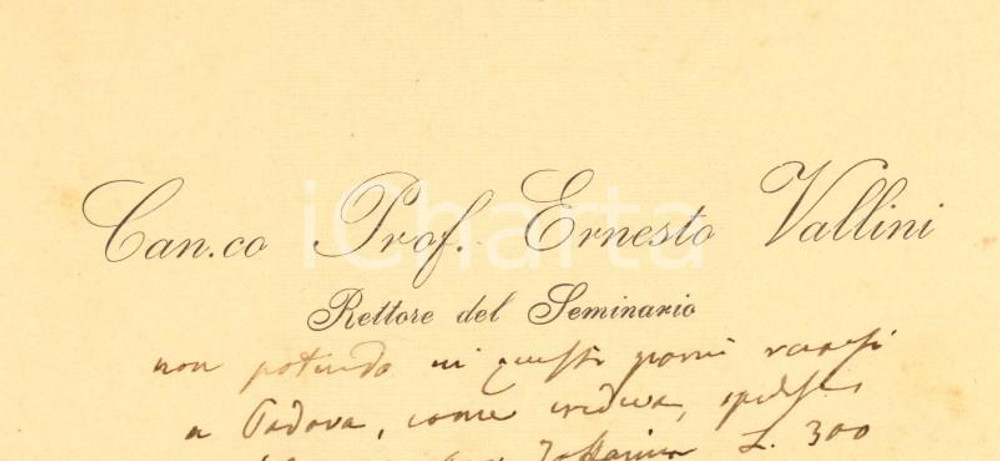 Can.co Prof. Ernesto Vallini
iCharta
Rettore del Seminario
non potendo in questi giorni recarsi
a Padova, come credeva,
L. 300